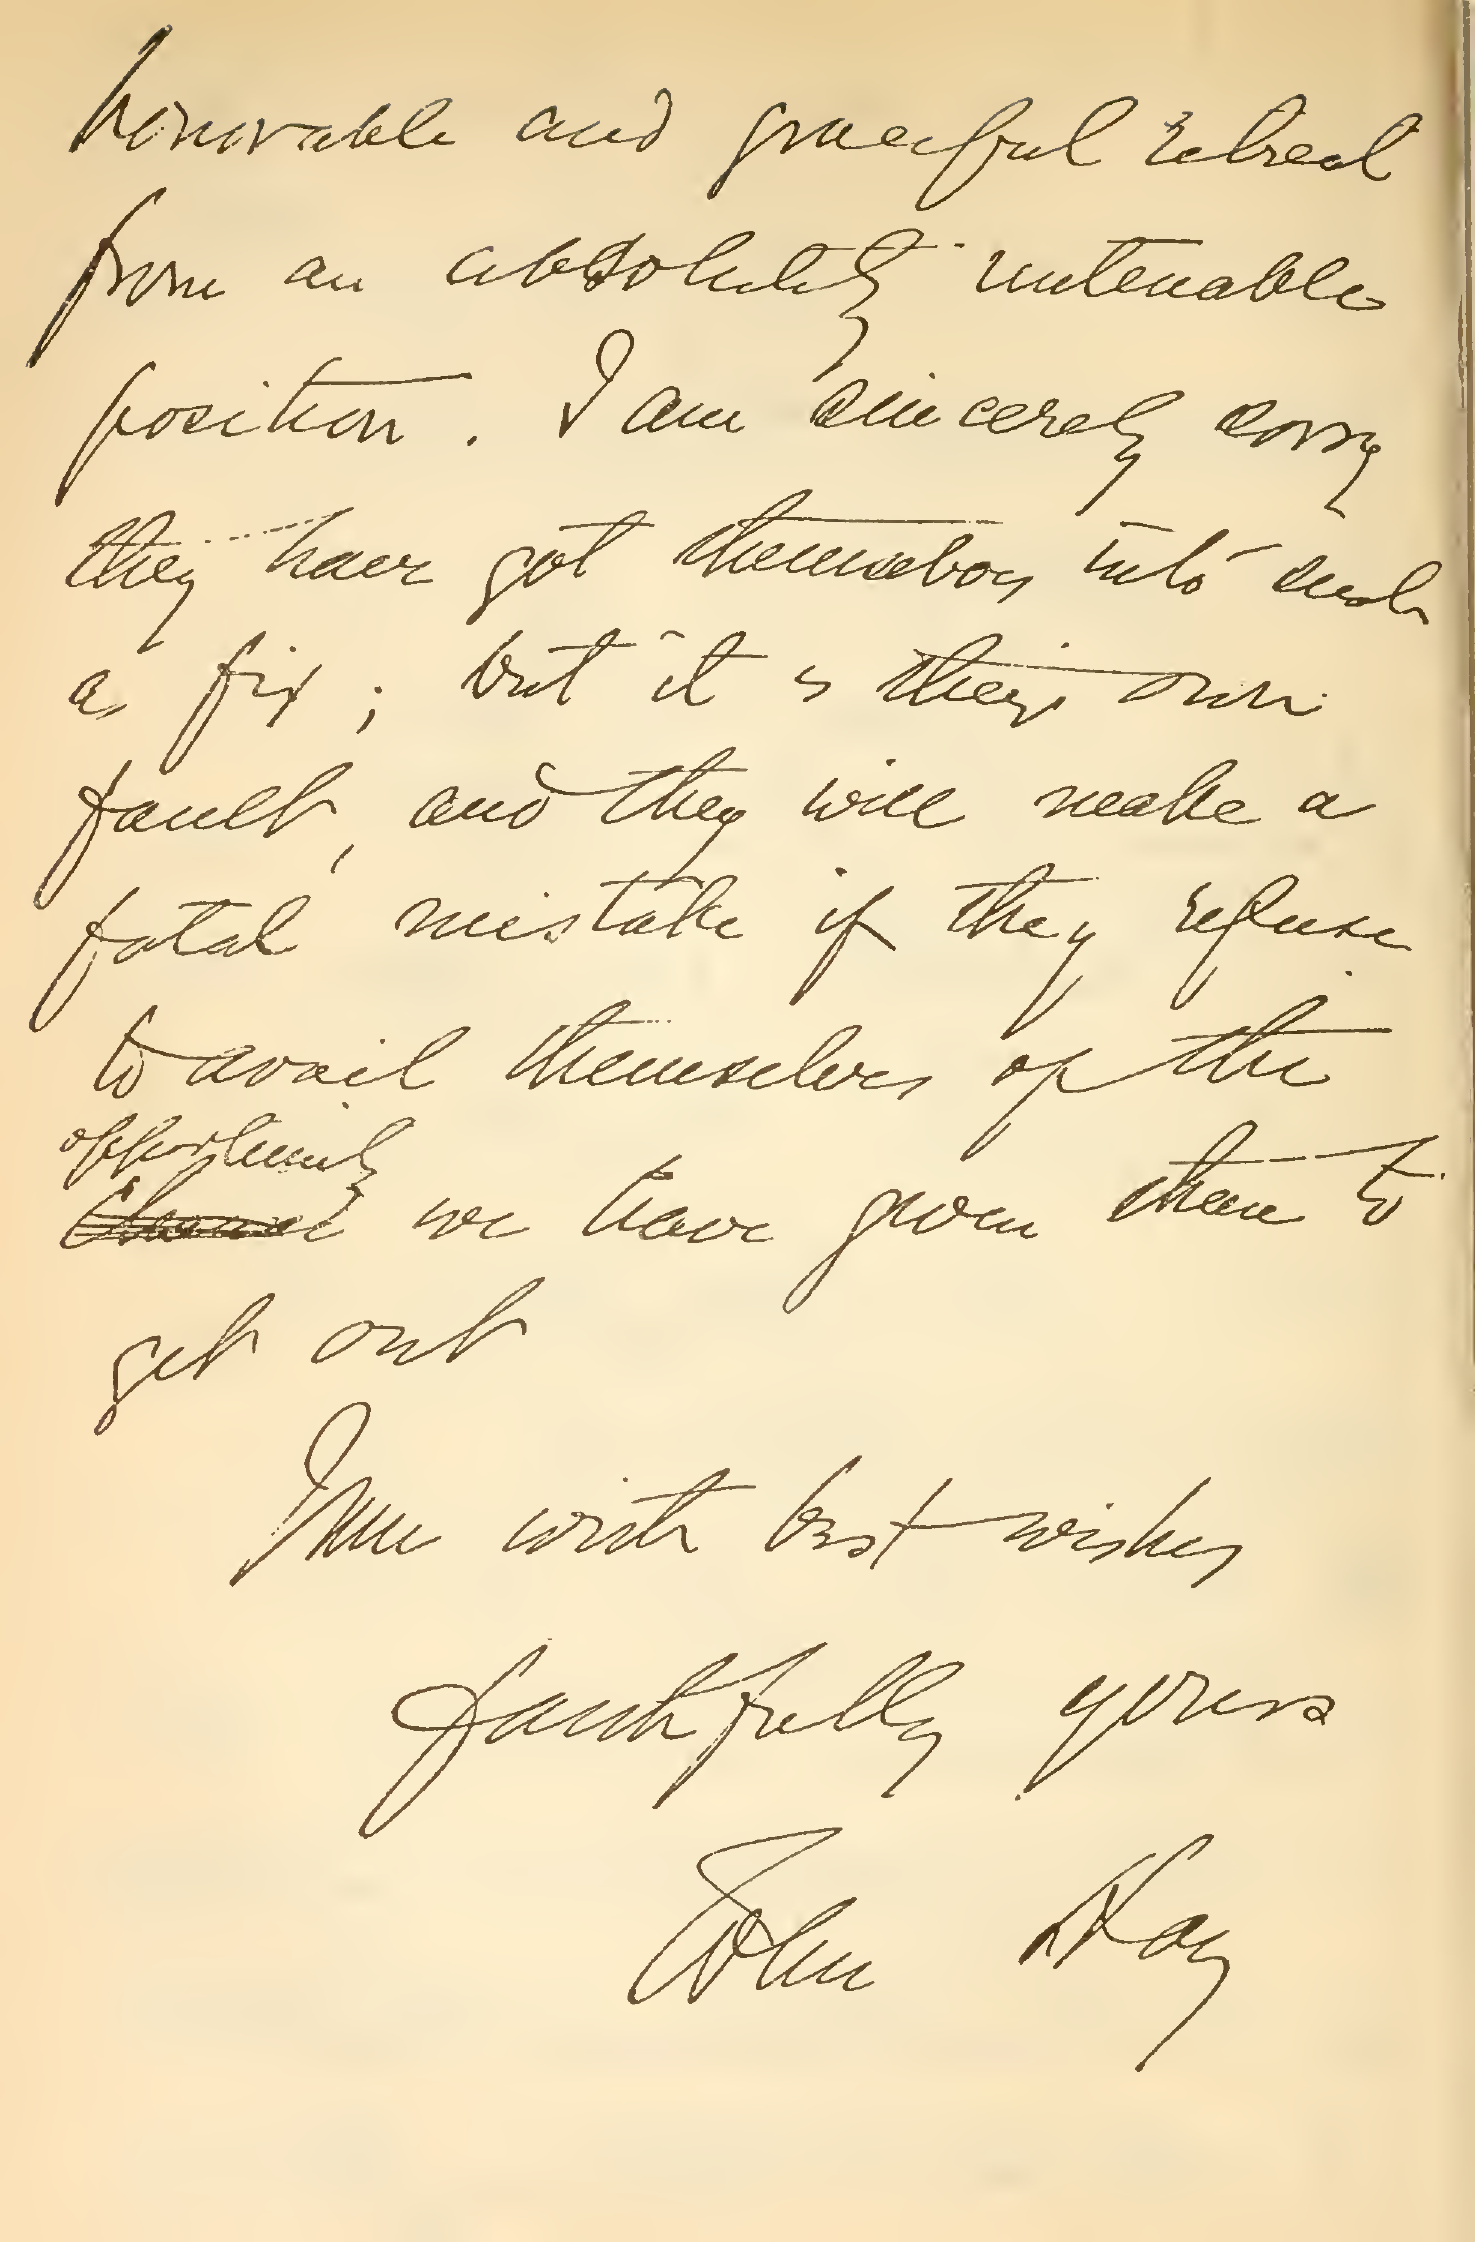 honorable and graceful retreat
from an absolutely untenable
position. I am sincerely sorry
they have got themselves into such
a fix; but it is their own
fault, and they will make a
fatal mistake if they refuse
to avail themselves of the
opportunity
chance we have given them to
get out
with best wishes
faithfully yours
John Hay